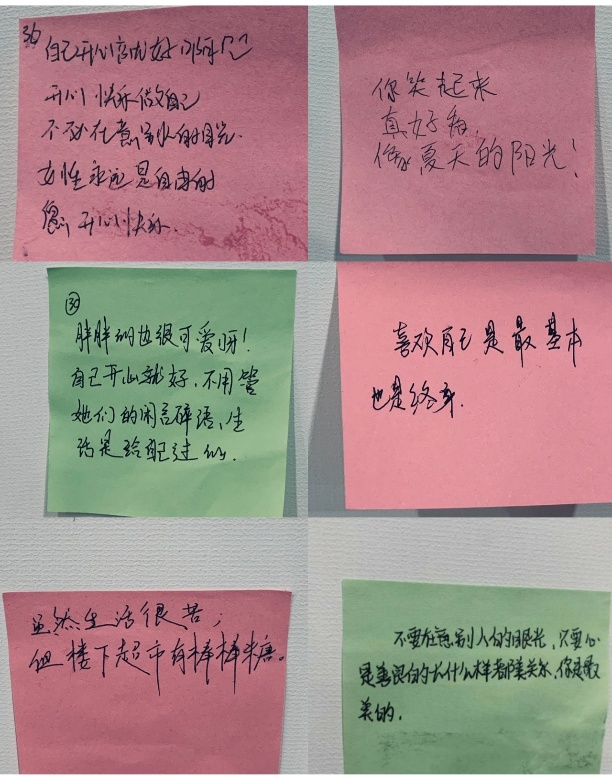 36
自己开心就好
开心快乐做自己
不必在意别人的目光.
女性永远是自由的
您开心快乐.
你笑起来
真好看,
像夏天的阳光!
39
胖胖的也很可爱呀!
自己开心就好,不用管
她们的闲言碎语,生
活是给自己过的.
喜欢自己是最基本
也是终身.
虽然生活很苦,
但楼下超市有棒棒糖。
不要在意别人的眼光,只要心
是善良的长什么样都没关系,你是最
美的.